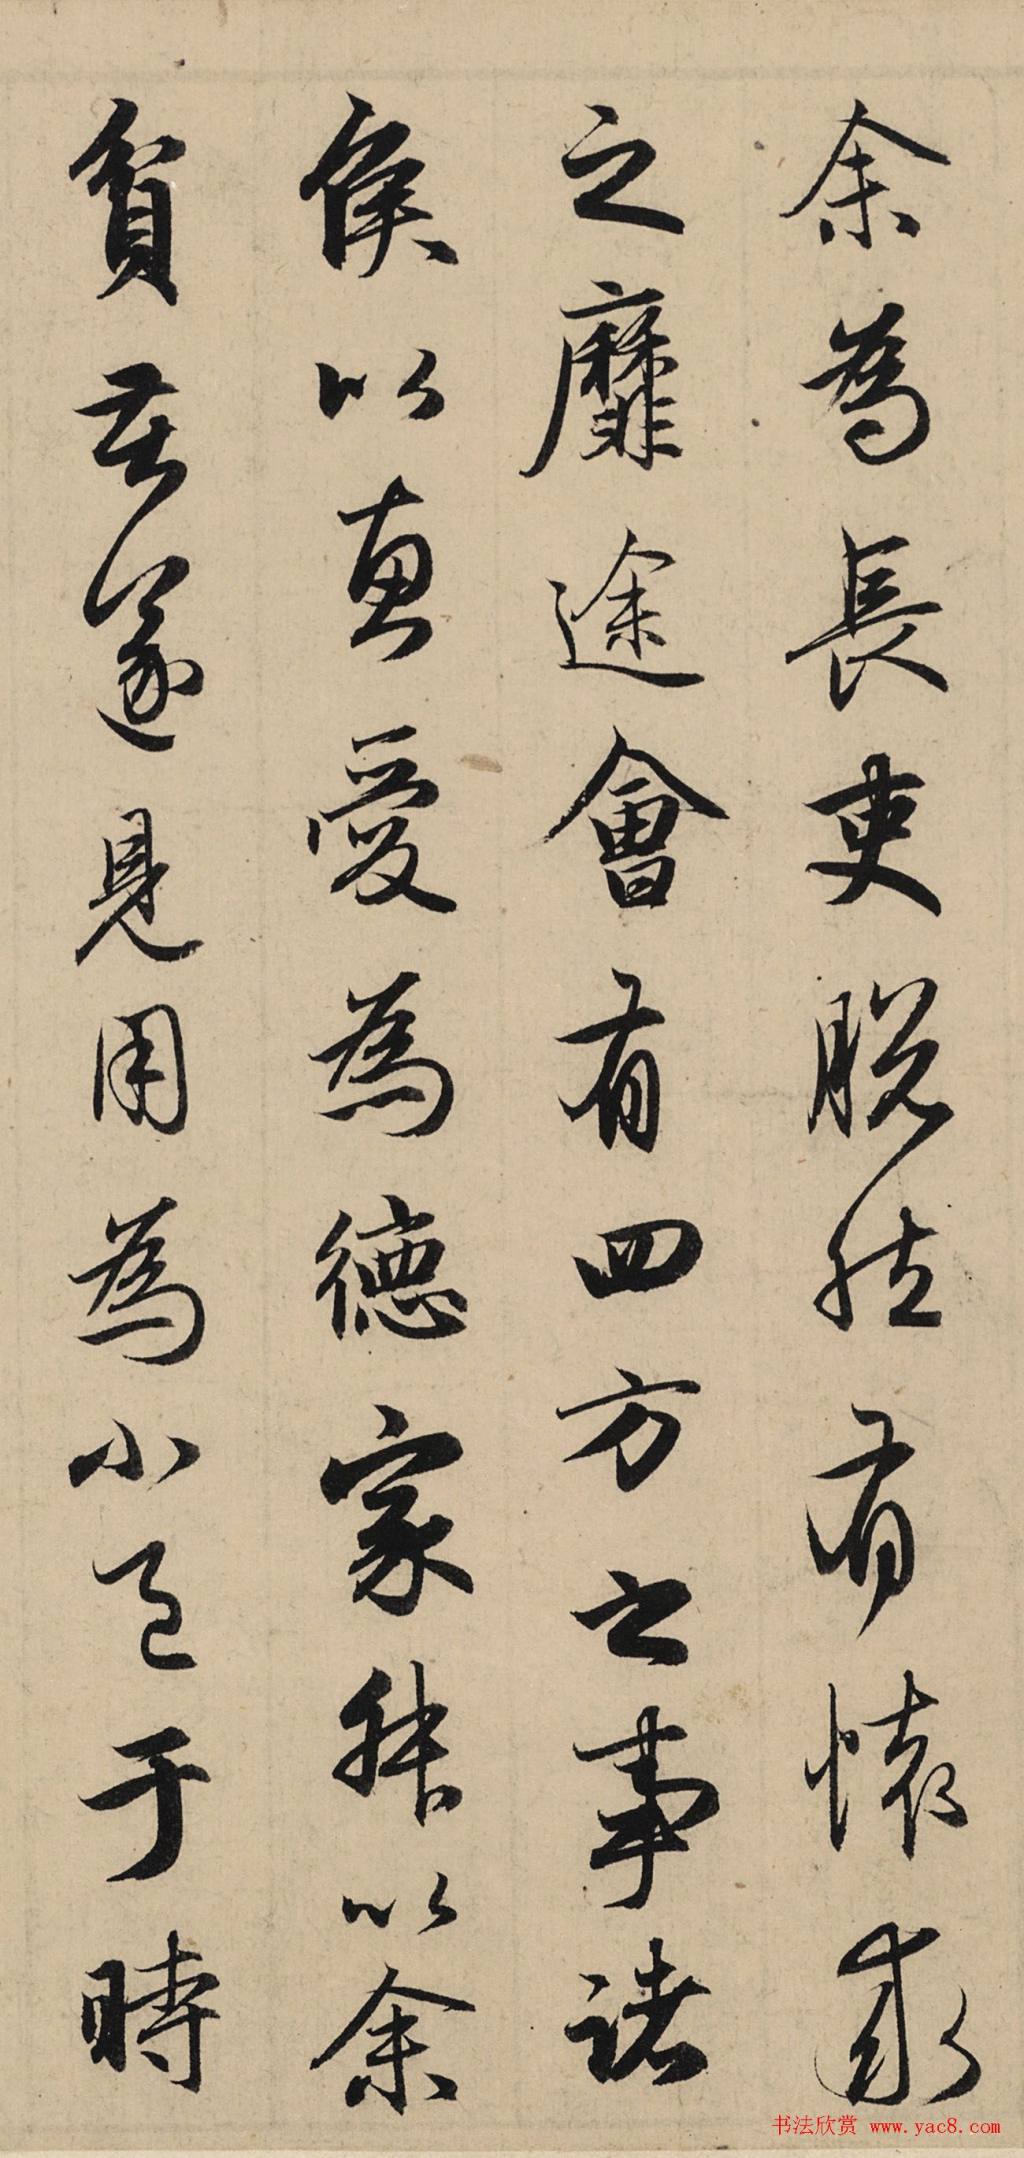 余為長吏脱然有懷求
之靡途會有四方之事諸
侯以惠愛為德家叔以余
貧苦遂見用為小邑于時
书法欣赏 www.yac8.com